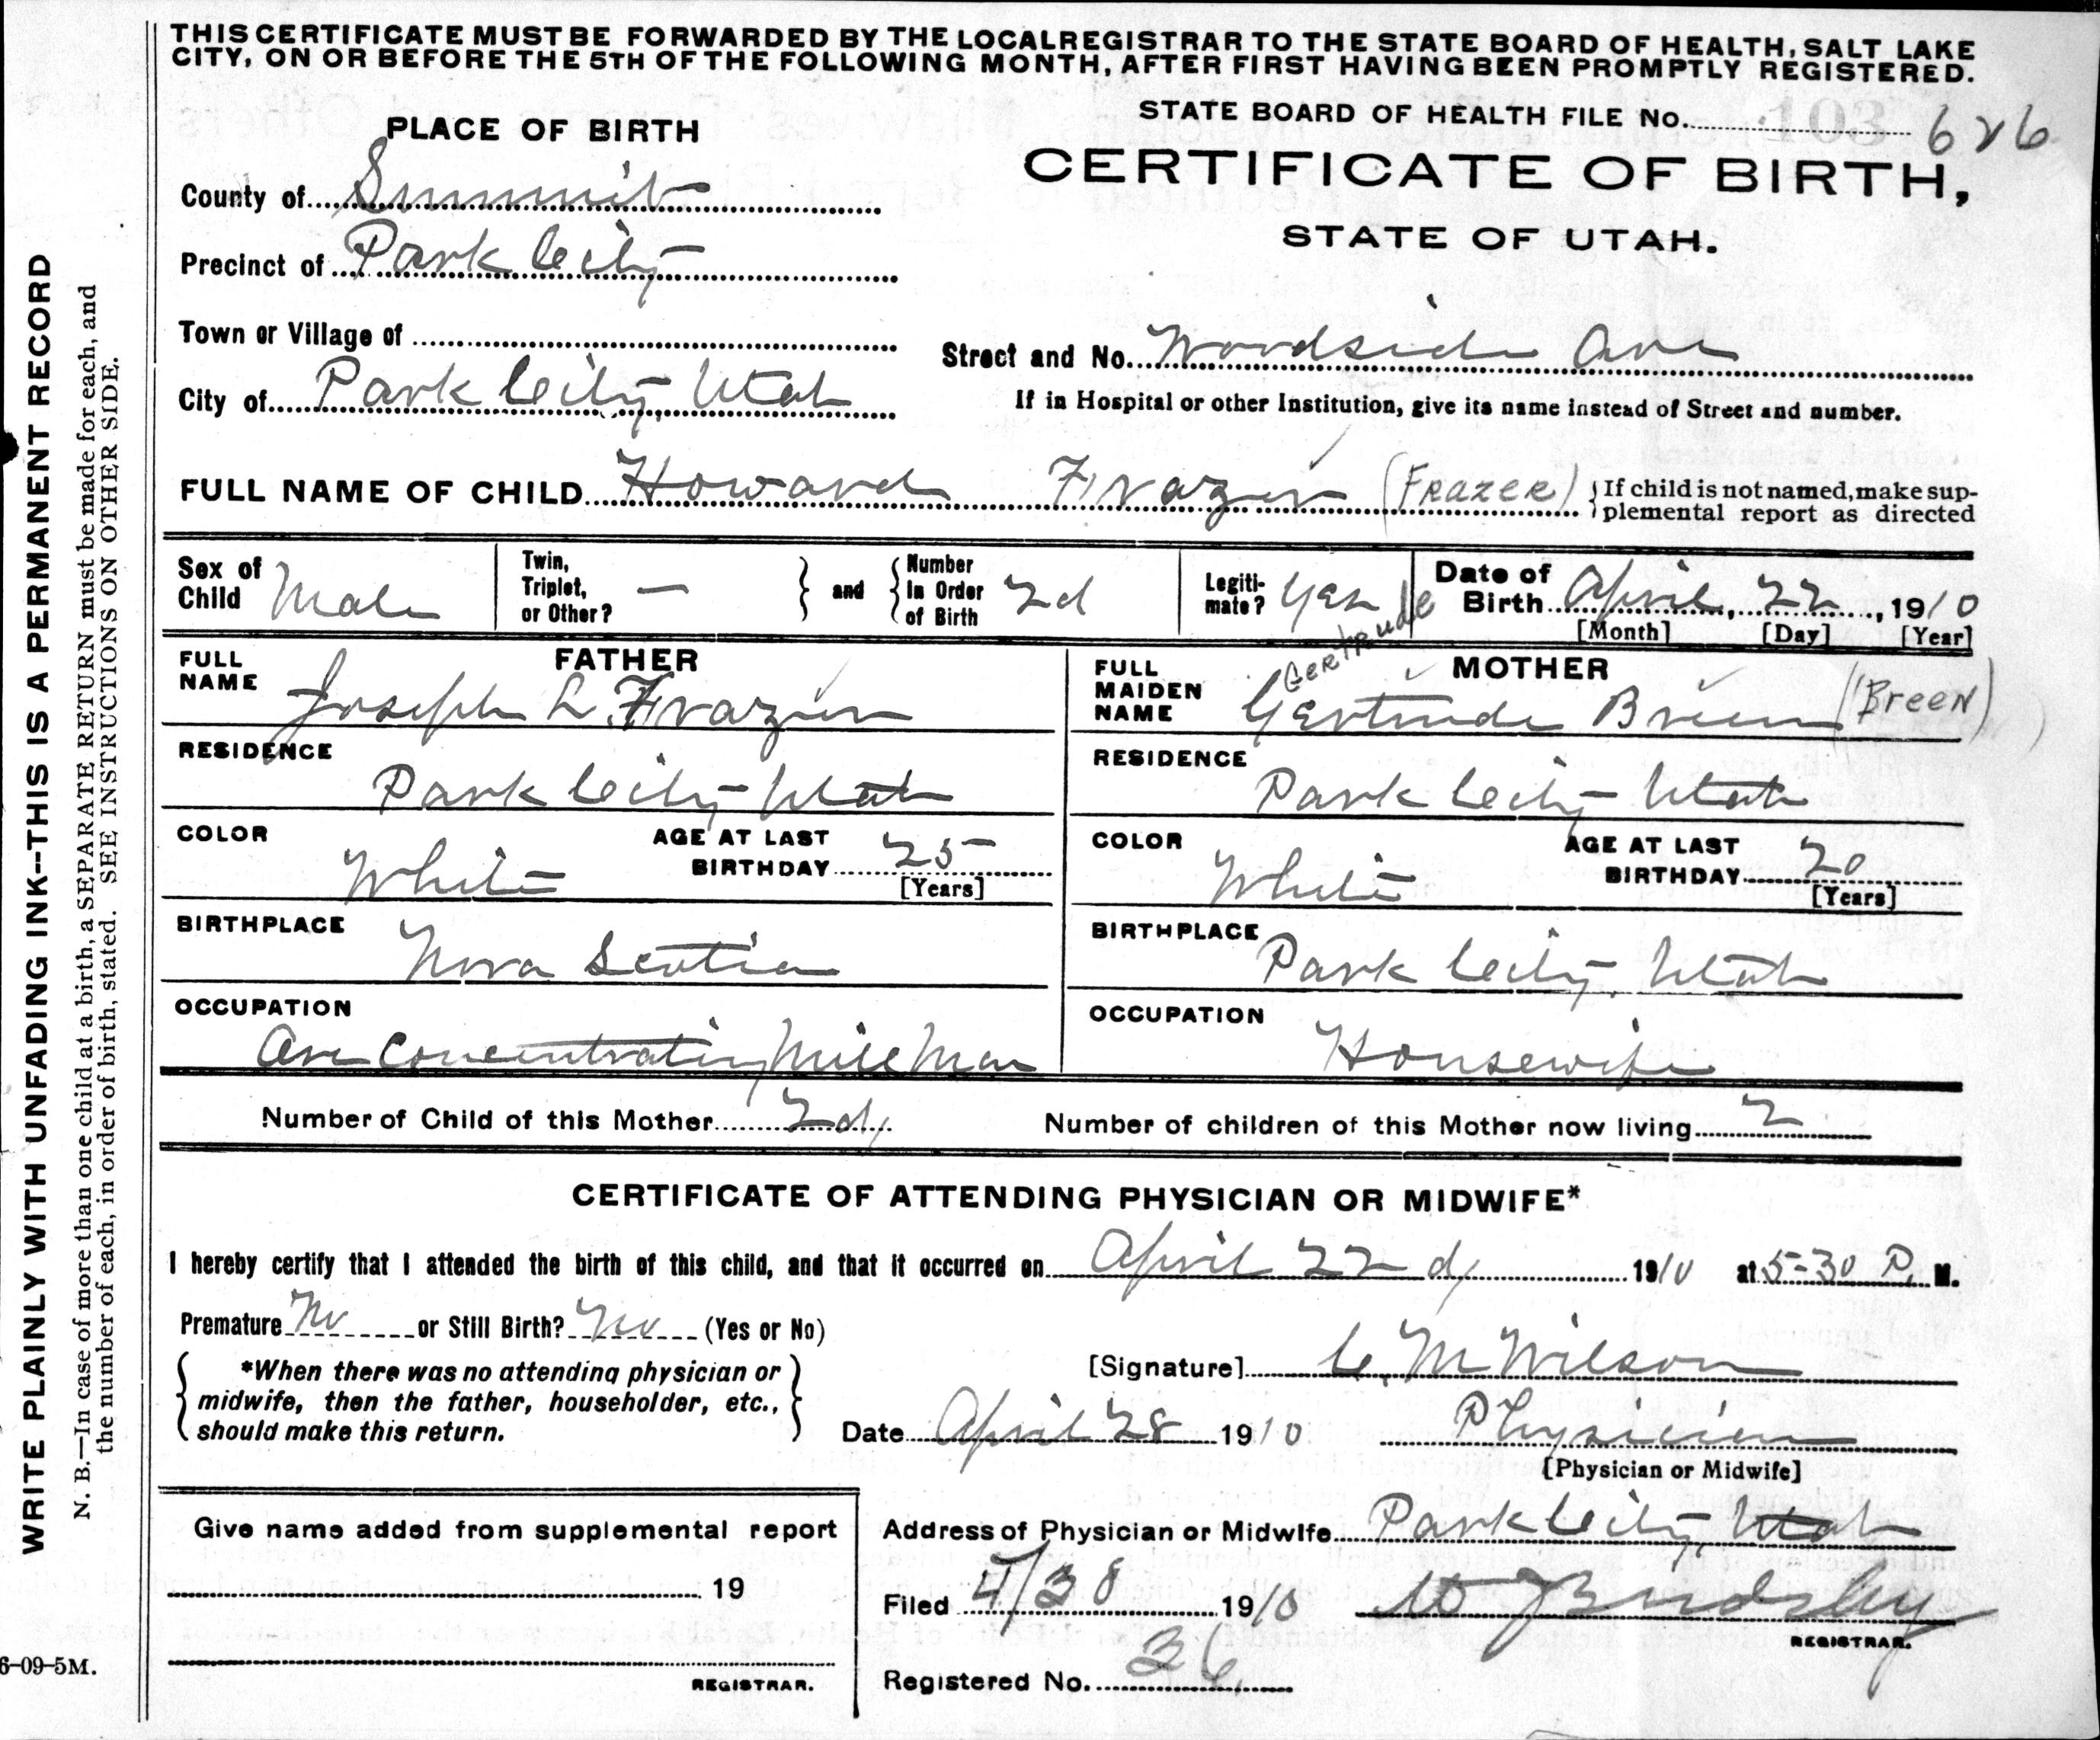 THIS CERTIFICATE MUST BE FORWARDED BY THE LOCAL REGISTRAR TO THE STATE BOARD OF HEALTH, SALT LAKE
CITY, ON OR BEFORE THE 5TH OF THE FOLLOWING MONTH, AFTER FIRST HAVING BEEN PROMPTLY REGISTERED.
STATE BOARD OF HEALTH FILE No. 103 626
PLACE OF BIRTH
CERTIFICATE OF BIRTH,
STATE OF UTAH.
County of Summit
Precinct of Park City
Town or Village of
Street and No. Woodside Ave
City of Park City, Utah
If in Hospital or other Institution, give its name instead of Street and number.
FULL NAME OF CHILD Howard Frazier (FRAZER) { If child is not named, make sup-
plemental report as directed
Sex of Child Male
Twin, Triplet, or Other? —
and
Number In Order of Birth 2d
Legiti-mate? Yes
Date of Birth April, 22, 1910
[Month] [Day] [Year]
FATHER
FULL NAME Joseph L. Frazier
RESIDENCE
Park City Utah
COLOR White
AGE AT LAST BIRTHDAY 25
[Years]
BIRTHPLACE
Nova Scotia
OCCUPATION
Ore Concentrating Mill Man
MOTHER
Gertrude
FULL MAIDEN NAME Gertrude Breen (Breen)
RESIDENCE
Park City Utah
COLOR White
AGE AT LAST BIRTHDAY 20
[Years]
BIRTHPLACE
Park City, Utah
OCCUPATION
Housewife
Number of Child of this Mother 2d
Number of children of this Mother now living 2
CERTIFICATE OF ATTENDING PHYSICIAN OR MIDWIFE*
I hereby certify that I attended the birth of this child, and that it occurred on April 22d, 1910 at 5-30 P. M.
Premature No or Still Birth? No (Yes or No)
*When there was no attending physician or
midwife, then the father, householder, etc.,
should make this return.
[Signature] C. M Wilson
Date April 28 1910
Physician
[Physician or Midwife]
Give name added from supplemental report
19
REGISTRAR.
Address of Physician or Midwife Park City, Utah
Filed 4/38 1910
REGISTRAR.
Registered No. 36
WRITE PLAINLY WITH UNFADING INK--THIS IS A PERMANENT RECORD
N. B.—In case of more than one child at a birth, a SEPARATE RETURN must be made for each, and
the number of each, in order of birth, stated. SEE INSTRUCTIONS ON OTHER SIDE.
6-09-5M.